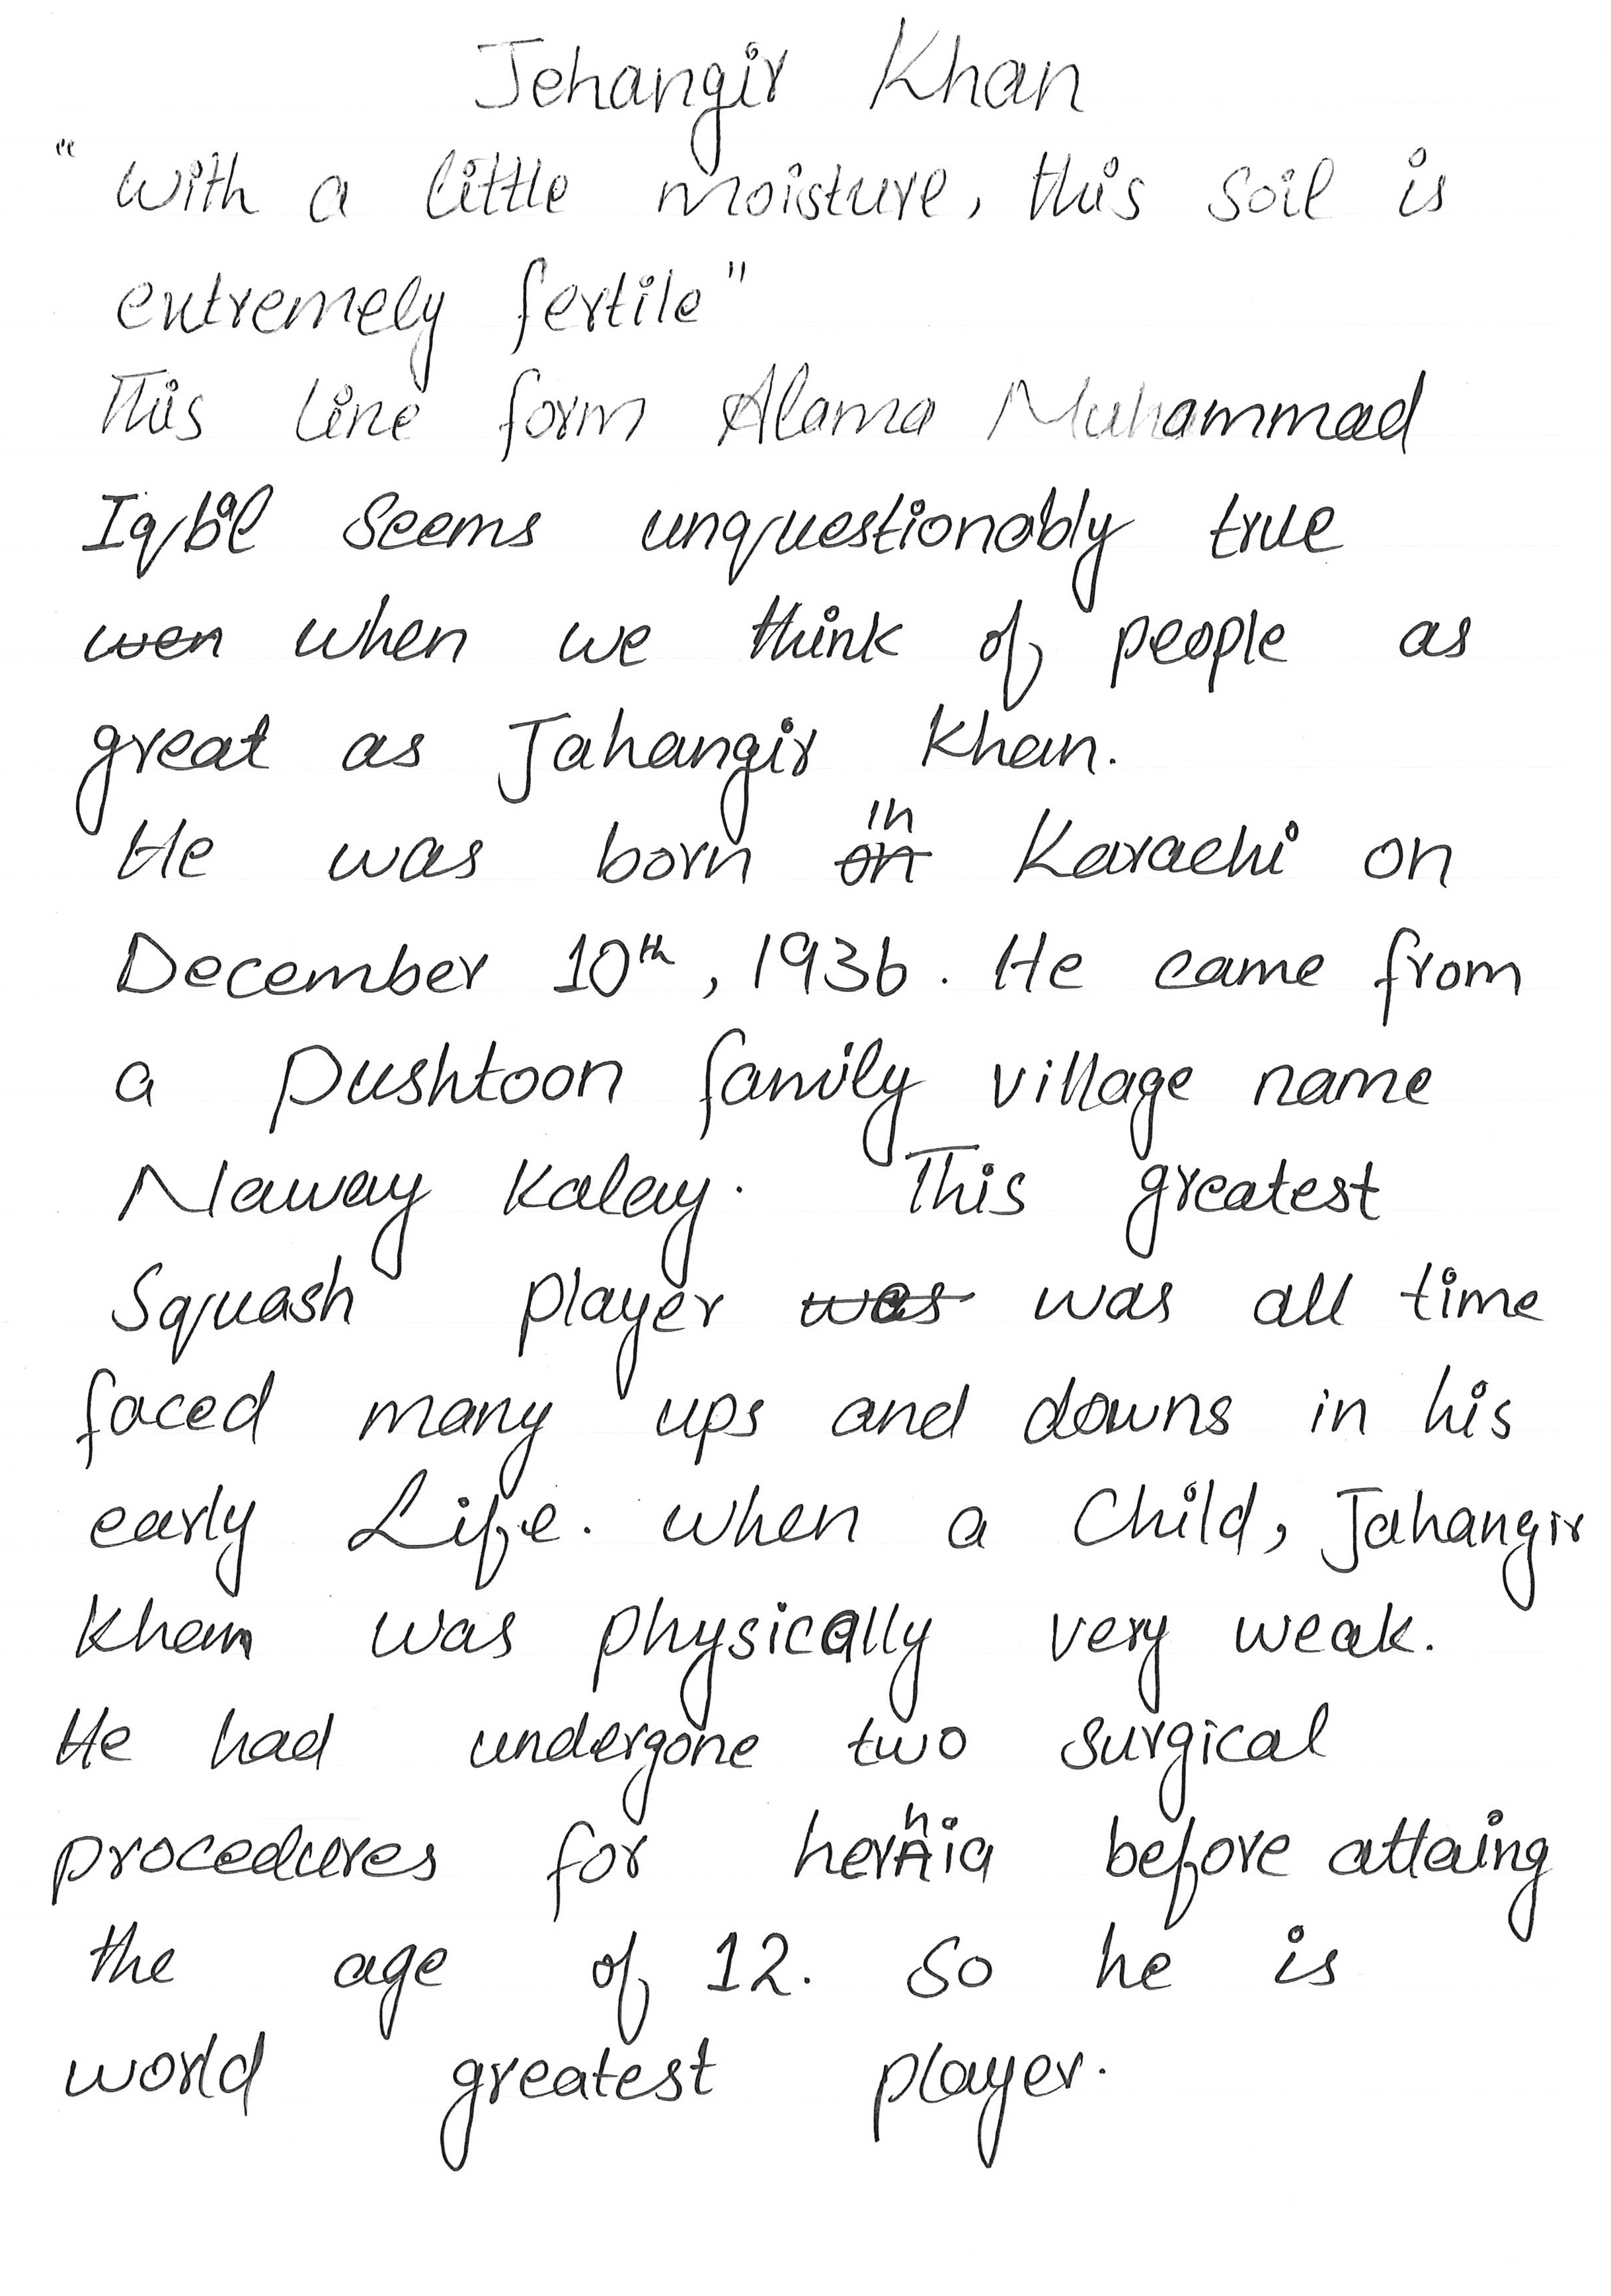 Jehangir Khan
"with a little moisture, this soil is
extremely fertile"
This line form Alama Muhammad
Iqbal seems unquestionably true
wen when we think of people as
great as Jahangir Khan.
He was born on in Karachi on
December 10th, 1936. He came from
a Pushtoon family village name
Naway Kalay. This greatest
Squash player was was all time
faced many ups and downs in his
early Life. when a Child, Jahangir
Khan was physically very weak.
He had undergone two surgical
procedures for hernia before attaing
the age of 12. So he is
world greatest player.